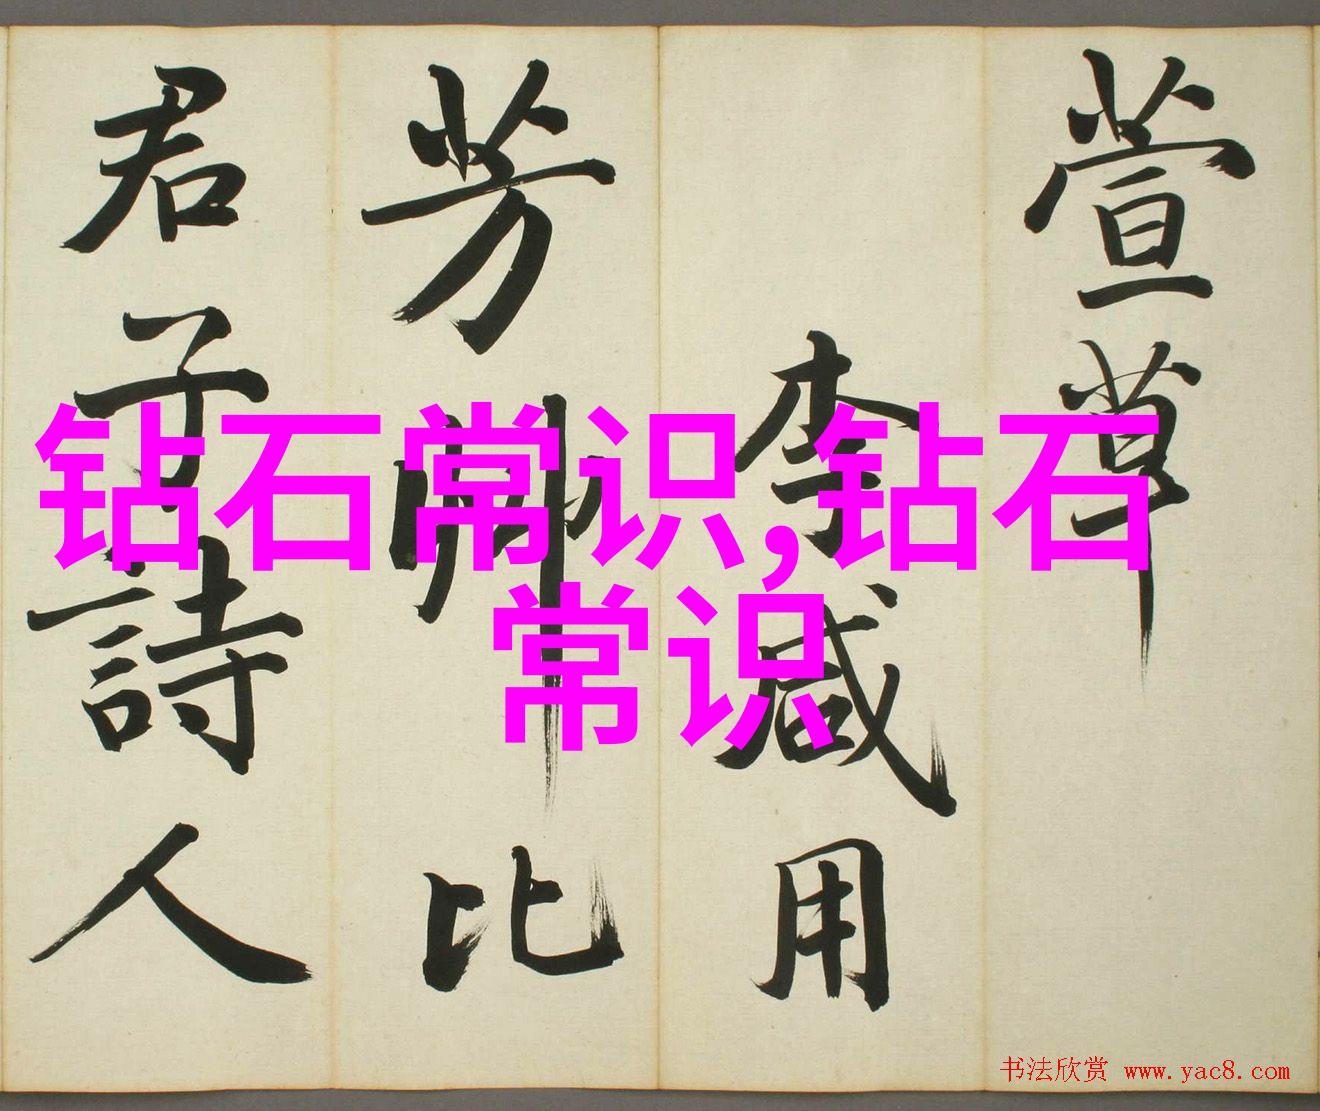 萱草
李咸用
芳艸比
君子詩人
钻石常识,钻石
常识
书法欣赏 www.yac8.com